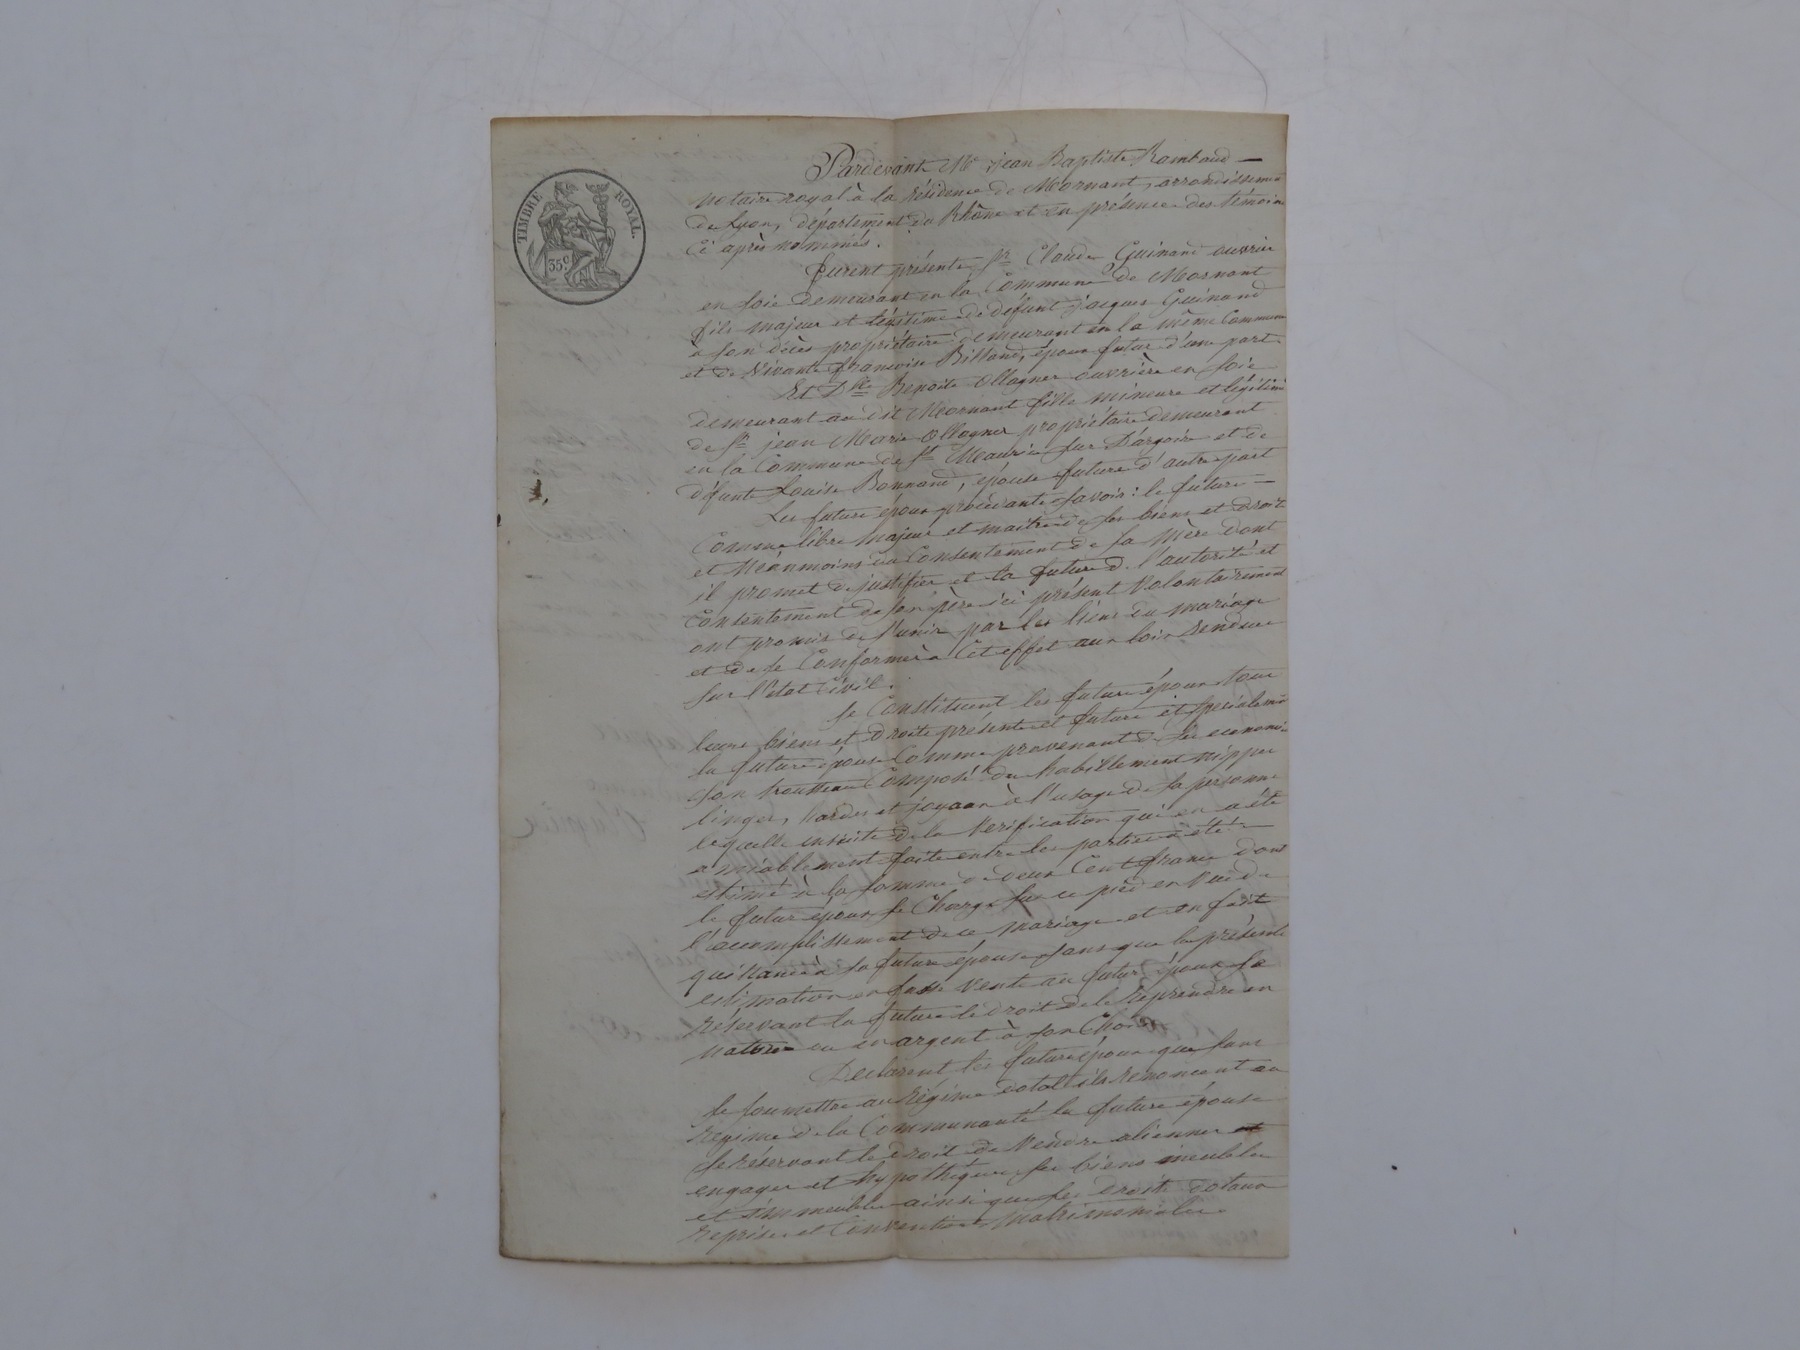 TIMBRE ROYAL.
35c
Pardevant Me Jean Baptiste Rambaud —
notaire royal à la résidence de Mornant, arrondissement
de Lyon, département du Rhône et en présence des témoins
Ci après nommés.
furent présents Sr Claude Guinand ouvrier
en soie demeurant en la Commune de Mornant
fils majeur et légitime de défunt jacques Guinand
à son décès propriétaire demeurant en la même Commune
et de vivante françoise Billand, époux futur d'une part.
Et Dlle Benoite Ollagner ouvrière en soie
demeurant au dit Mornant fille mineure et légitime
de Sr jean Marie Ollagner propriétaire demeurant
en la Commune de St Maurice sur Dargoire et de
défunte Louise Bonnand, épouse future d'autre part
Les futurs époux procèdants savoir : le futur —
Comme libre majeur et maitre de ses biens et droits
et Néanmoins du Consentement de sa Mère dont
il promet de justifier et la future de l'autorité et
Consentement de son père ici présent Volontairement
ont promis de s'unir par les liens du mariage
et de se Conformer à Cet effet aux lois rendues
sur l'état Civil.
Se Constituent les futurs époux tous
leurs biens et droits présents et futurs et specialement
la future épouse Comme provenant de ses economies
son trousseau Composé de habillement nippes
linges, hardes et joyaux à l'usage de sa personne
lequelle ensuite de la Verification qui en a été
amiablement faite entre les parties a été
estimé à la somme de deux Cent francs dont
le futur époux se Charge sur ce pied en Vue de
l'accomplissement de ce mariage et en fait
quittance à sa future épouse sans que la présente
estimation en fasse Vente au futur époux se
réservant la future le droit de le reprendre en
nature ou en argent à son Choix
Declarent les futurs époux que sans
se soumettre au régime dotal ils renoncent au
régime de la Communauté la future épouse
se réservant le droit de Vendre alienner et
engager et hypothéquer ses biens meubles
et immeubles ainsi que ses droits dotaux
reprises et Conventions Matrimoniales.